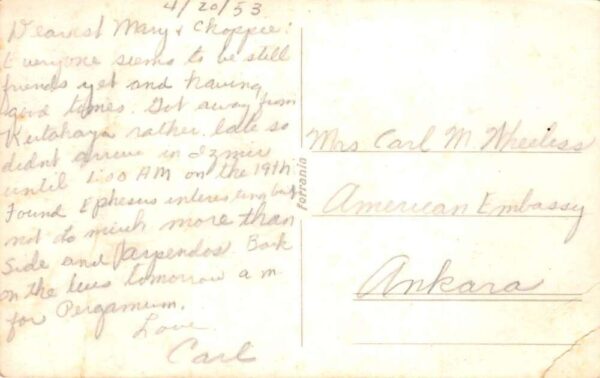 4/20/53
Dearest Mary & Choppie:
Everyone seems to be still
friends yet and having
good times. Got away from
Kutahaya rather late so
didnt arrive in Izmir
until 1:00 AM on the 19th.
Found Ephesus interesting but
not so much more than
Side and Aspendos Back
on the bus tomorrow a m
for Pergamum.
Love
Carl
ferrania
Mrs Carl M Wheeless
American Embassy
Ankara